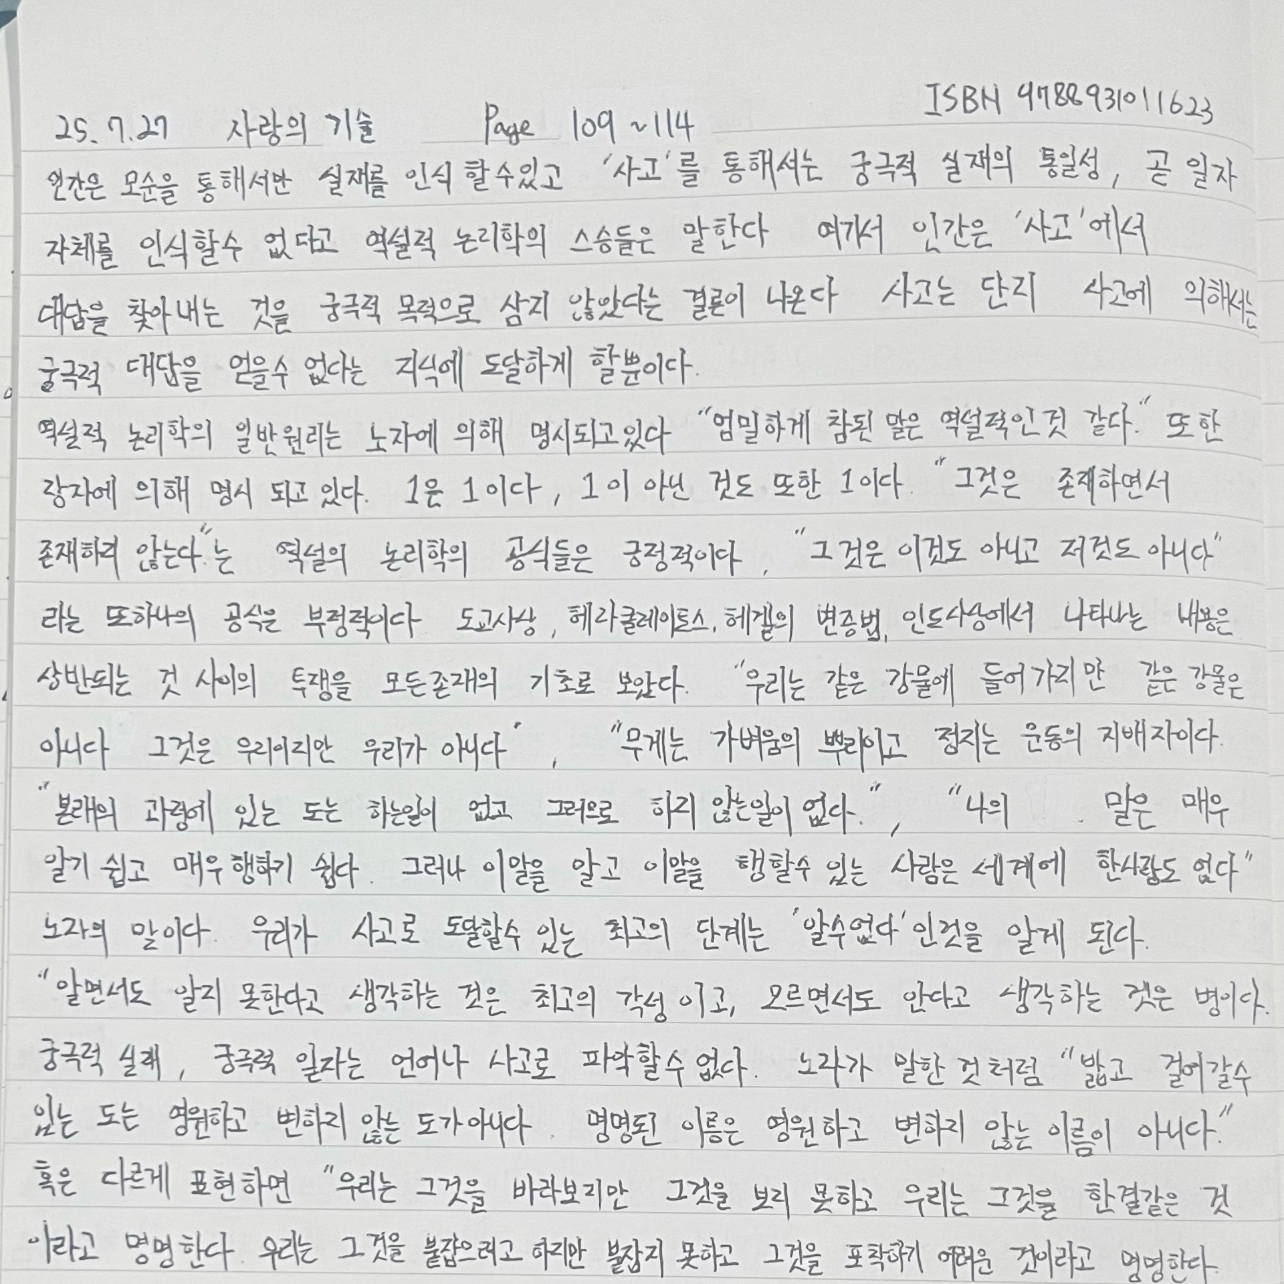 25.7.27 사랑의 기술 Page 109~114 ISBN 9788931011623
인간은 모순을 통해서만 실재를 인식 할수있고 '사고'를 통해서는 궁극적 실재의 통일성, 곧 일자
자체를 인식할수 없다고 역설적 논리학의 스승들은 말한다 여기서 인간은 '사고'에서
대답을 찾아내는 것을 궁극적 목적으로 삼지 않았다는 결론이 나온다 사고는 단지 사고에 의해서는
궁극적 대답을 얻을수 없다는 지식에 도달하게 할뿐이다.
역설적 논리학의 일반원리는 노자에 의해 명시되고있다 "엄밀하게 참된 말은 역설적인것 같다." 또한
장자에 의해 명시 되고 있다. 1은 1이다, 1이 아닌 것도 또한 1이다. "그것은 존재하면서
존재하지 않는다"는 역설의 논리학의 공식들은 긍정적이다, "그것은 이것도 아니고 저것도 아니다"
라는 또하나의 공식은 부정적이다 도교사상, 헤라클레이토스, 헤겔의 변증법, 인도사상에서 나타나는 내용은
상반되는 것 사이의 투쟁을 모든존재의 기초로 보았다. "우리는 같은 강물에 들어가지만 같은 강물은
아니다 그것은 우리이지만 우리가 아니다", "무게는 가벼움의 뿌리이고 정지는 운동의 지배자이다.
"본래의 과정에 있는 도는 하는일이 없고 그러므로 하지 않는일이 없다.", "나의 말은 매우
알기 쉽고 매우 행하기 쉽다. 그러나 이말을 알고 이말을 행할수 있는 사람은 세계에 한사람도 없다"
노자의 말이다. 우리가 사고로 도달할수 있는 최고의 단계는 '알수없다'인것을 알게 된다.
"알면서도 알지 못한다고 생각하는 것은 최고의 각성 이고, 모르면서도 안다고 생각하는 것은 병이다.
궁극적 실재, 궁극적 일자는 언어나 사고로 파악할수 없다. 노자가 말한 것처럼 "밟고 걸어갈수
있는 도는 영원하고 변하지 않는 도가아니다. 명명된 이름은 영원하고 변하지 않는 이름이 아니다."
혹은 다르게 표현하면 "우리는 그것을 바라보지만 그것을 보지 못하고 우리는 그것을 한결같은 것
이라고 명명한다. 우리는 그것을 붙잡으려고 하지만 붙잡지 못하고 그것을 포착하기 어려운 것이라고 명명한다.